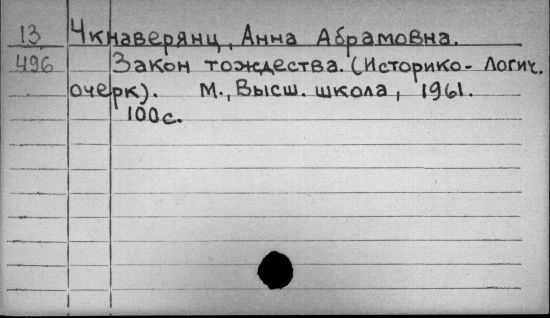 13 Чкнаверянц, Анна Абрамовна.
496 Закон тождества. (Историко- Логич.
очерк). М., Высш. школа, 1961.
100с.